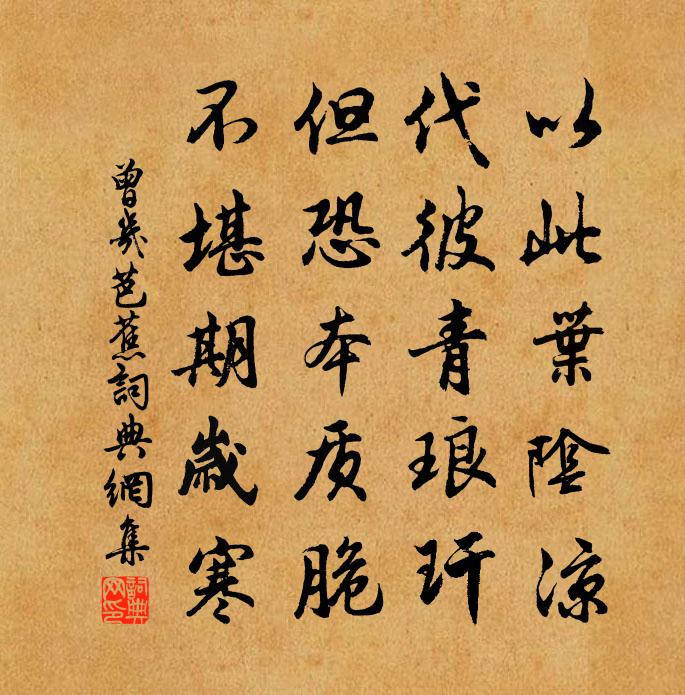 以此葉陰涼
代彼青琅玕
但恐本质脆
不堪期歲寒
曾幾芭蕉詞典網集
詞典网印